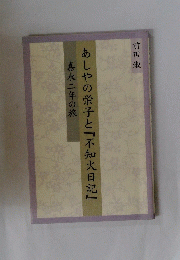 あしやの栄子と『不知火日記』
嘉永二年の旅